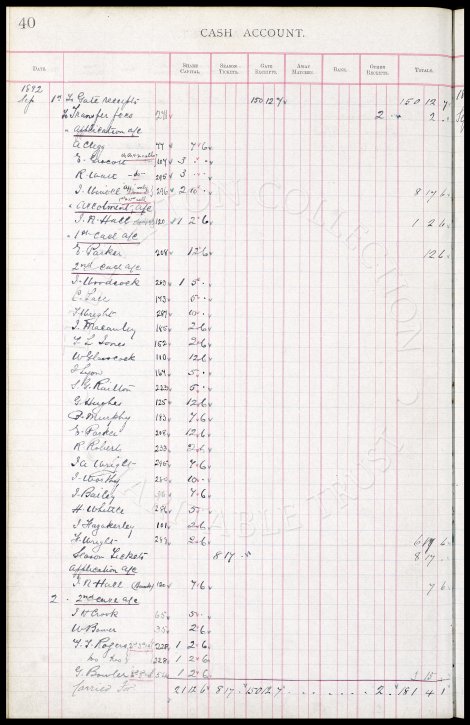 40
CASH ACCOUNT.
DATE. SHARE CAPITAL. SEASON TICKETS. GATE RECEIPTS. AWAY MATCHES. BANK. OTHER RECEIPTS. TOTALS.
1892
Sep 1st To Gate receipts 150 12 7 150 12 7
To Transfer fees 2 2
" Application a/c
A Clegg 77 7 6
E. 3
R 295 3
J. 296 2 10 8 17 6
" Allotment a/c
J. R Hall 120 1 2 6 1 2 6
" 1st Call a/c
E. Parker 208 12 6 12 6
2nd Call a/c
J. Woodcock 1 5
C. 143 5
J Wright 287 10
J. Macauley 185 2 6
T. L Jones 152 2 6
W Glasscock 110 12 6
J Lyon 164 5
S G. Railton 223 5
G. Hughes 125 12 6
P. Murphy 193 7 6
E. Parker 208 12 6
R Robert 233 2 6
J. A Wright 295 7 6
J. Worthy 10
J. Bailey 7 6
H Whittle 286 5
J Hazakerley 101 2 6
H Wright 293 2 6 6 6
Season Tickets 8 17 8 17
Application a/c
J. R Hall 120 7 6 7 6
2 " 2nd Call a/c
J H Crook 65 5
W Bower 35 2 6
T. J. Rogers 228 1 2 6
Do Do 228 1 2 6
G. Bowler 1 2 6
Carried Fo 21 12 6 8 17 150 12 7 2 181 4 1